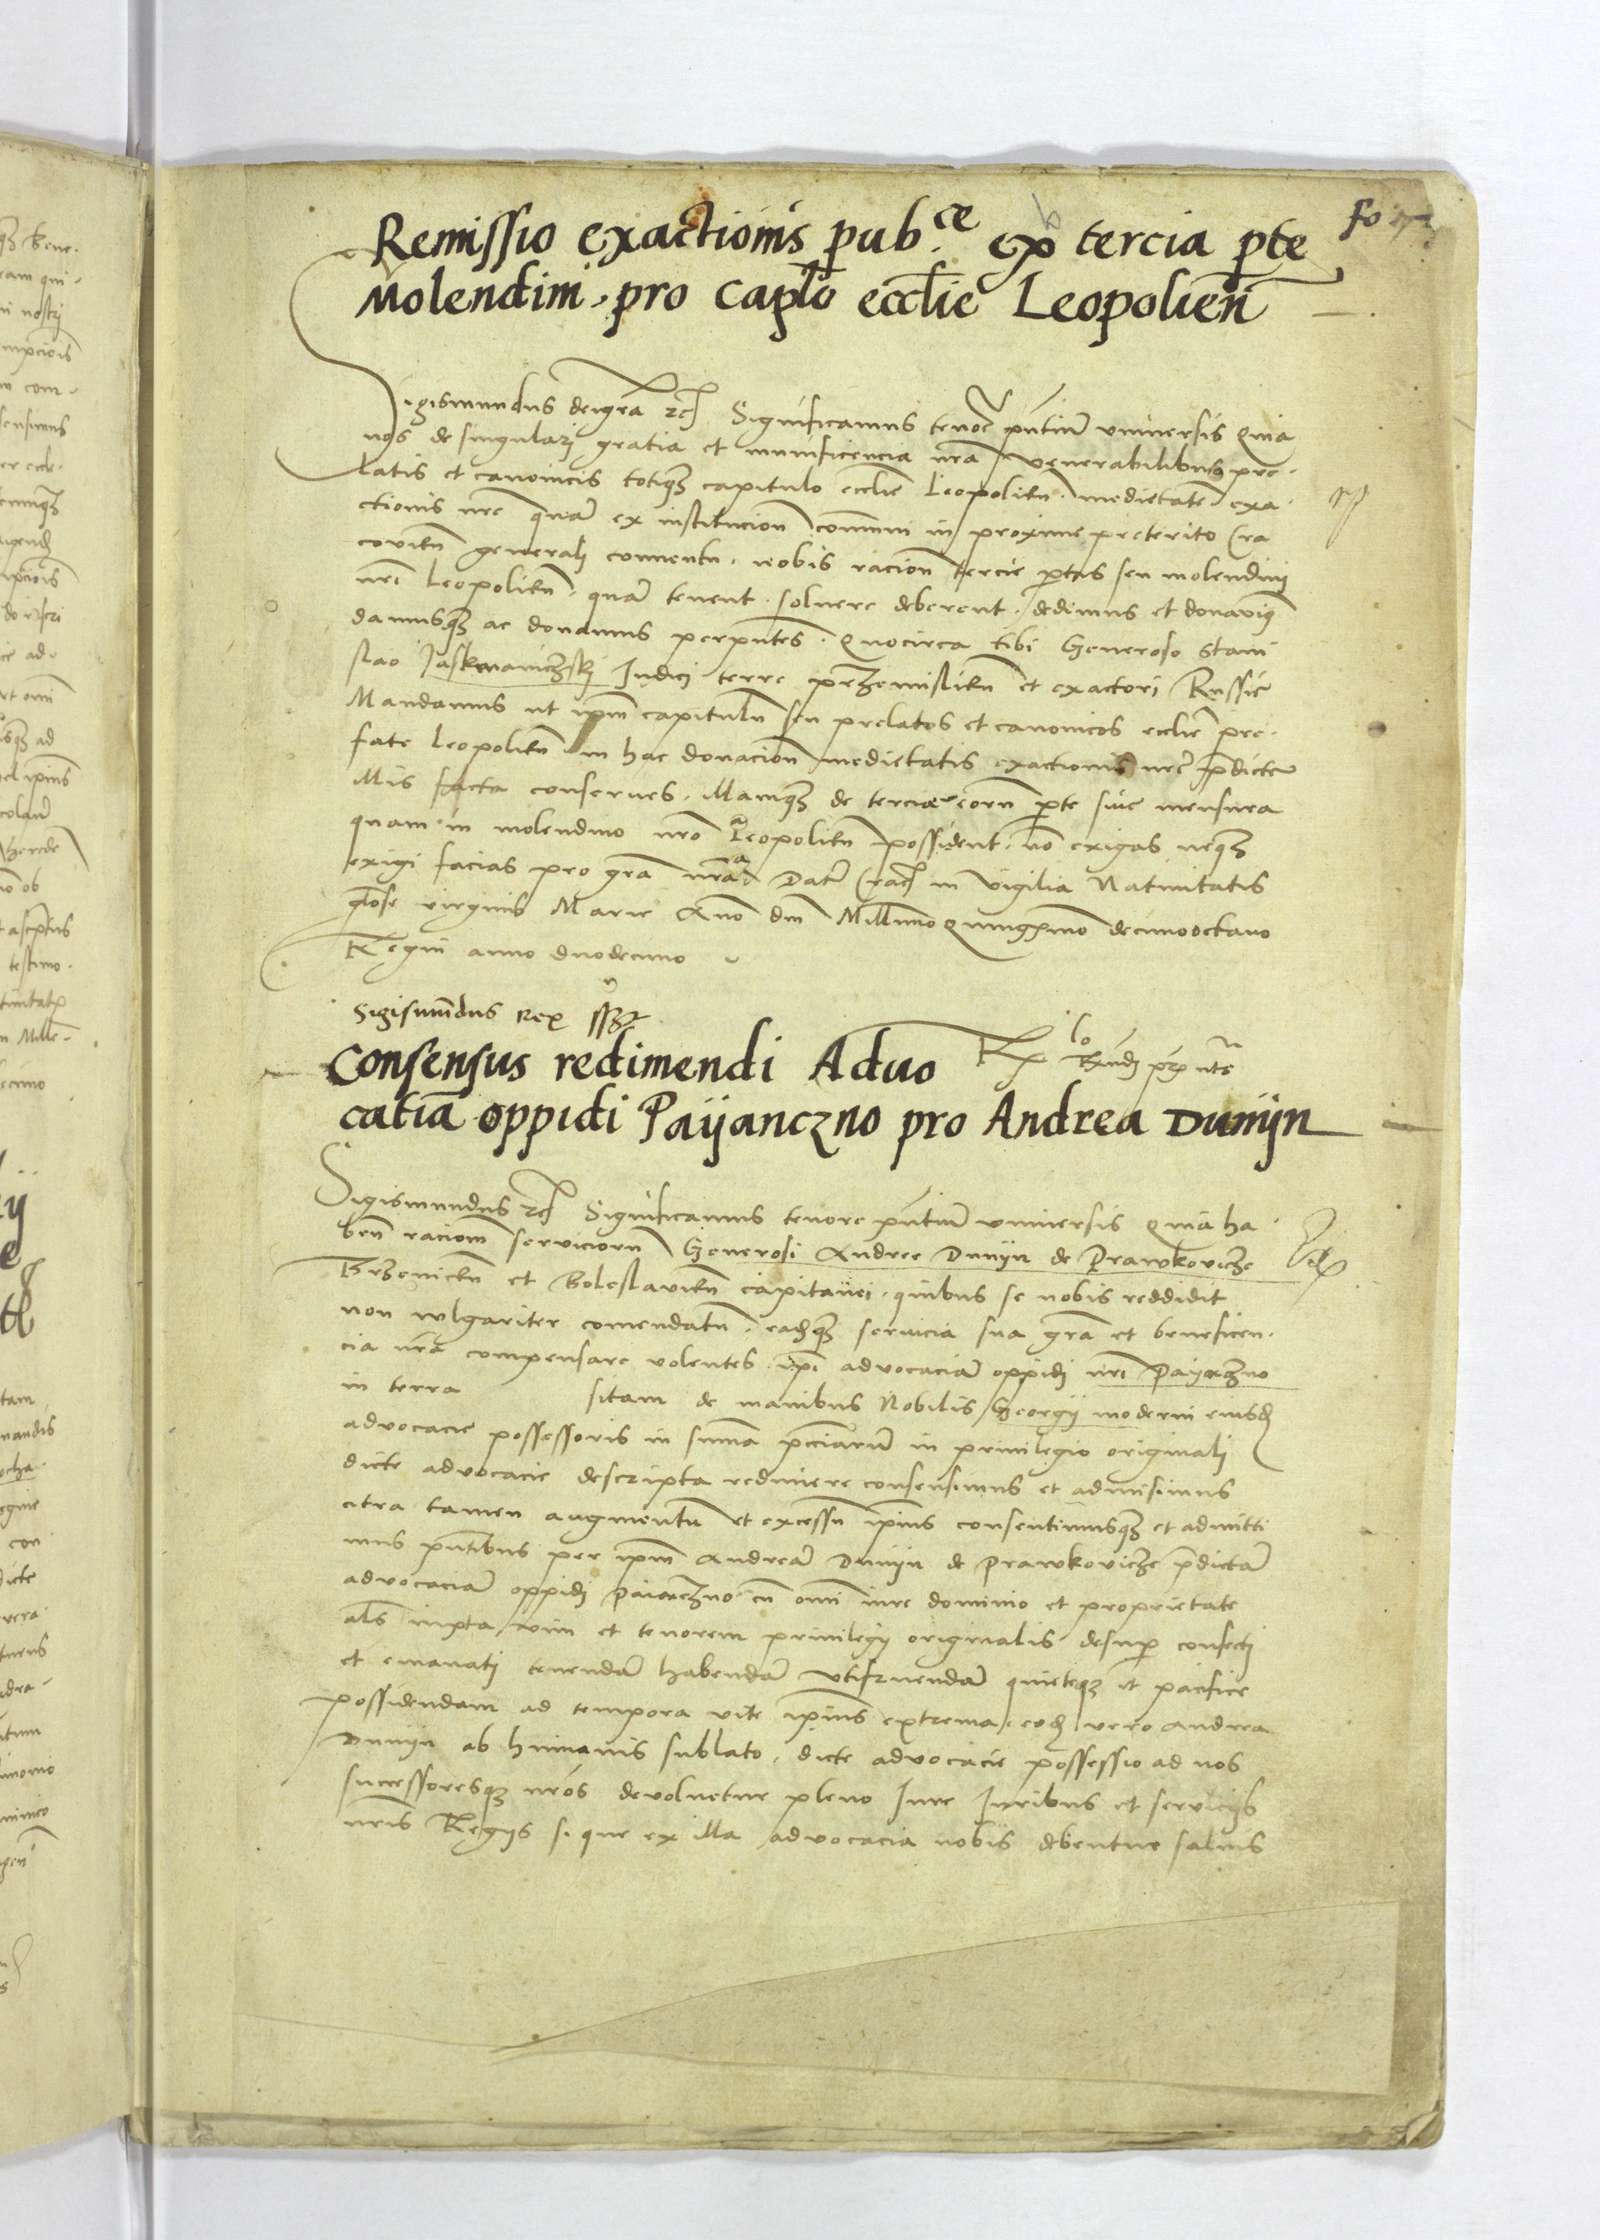 Fo
Remissio exactionis pub.ce ex tercia pte
Molendini pro Caplo ecclie Leopolien
Sigismundus dei gra rex Significamus tenore pntium universis Quia
nos de singulari gratia et munificencia nra venerabilibus pre-
latis et canonicis totiqz capitulo ecclie Leopolien medietatem exa-
ctionis nre quam ex institucione communi in proxime preterito Cra
covien generali conventu nobis racione tercie partis seu molendini
nri Leopolien quam tenent solvere deberent dedimus et donavimus
damusqz ac donamus per pntes Quocirca tibi Generoso Stani
slao Jaskmaniczskj Iudici terre przemislien et exactori Russie
Mandamus ut ipm capitulum seu prelatos et canonicos ecclie pre-
fate Leopolien in hac donacione medietatis exactionis nre pdicte
illis facta conserves illamqz de tercia eorum pte sive mensura
quam in molendino nro Leopolien possident no exigas neqz
exigi facias pro gra nra Dat Crac in vigilia Nativitatis
gliose virginis Marie Anno dni Millimo Quingmo decimooctavo
Regni anno duodecimo
Sigismundus Rex sszt
Consensus redimendi Aduo
catiã oppidi Paijanczno pro Andrea Dunijn
Sigismundus rex Significamus tenore pntium universis Quia ha
ben racionem serviciorum Generosi Andree Dunijn de Prawkovicze
Brzenicien et Boleslavien capitanei quibus se nobis reddidit
non vulgariter comendatum eadqz servicia sua gra et beneficen-
cia nra compensare volentes ipi advocaciam oppidi nri Paijanczno
in terra sitam de manibus Nobilis Georgij moderni eiusd
advocacie possessoris in summa pecciarum in privilegio originali
dicte advocacie descripta redimere consensimus et admisimus
citra tamen augmentum et excessum ipius consentimusqz et admitti
mus pntibus per ipm Andream Dunijn de Prawkovicze pdictam
advocaciam oppidi Paianczno cu omi iure dominio et proprietate
als iuxta vim et tenorem privilegij originalis desup confecti
et emanati tenendam habendam utifruendam quieteqz et pacifice
possidendam ad tempora vite ipius extrema eod vero Andrea
Dunijn ab humanis sublato dicte advocacie possessio ad nos
successoresqz nros devolvetur pleno Iure Iuribus et servicijs
nris Regijs si que ex illa advocacia nobis debentur salvis